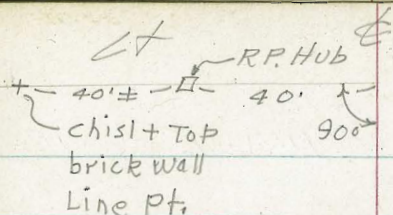 Lt
℄
R.P. Hub
+ 40'± 40'
chisl + Top
90°
brick wall
Line Pt.